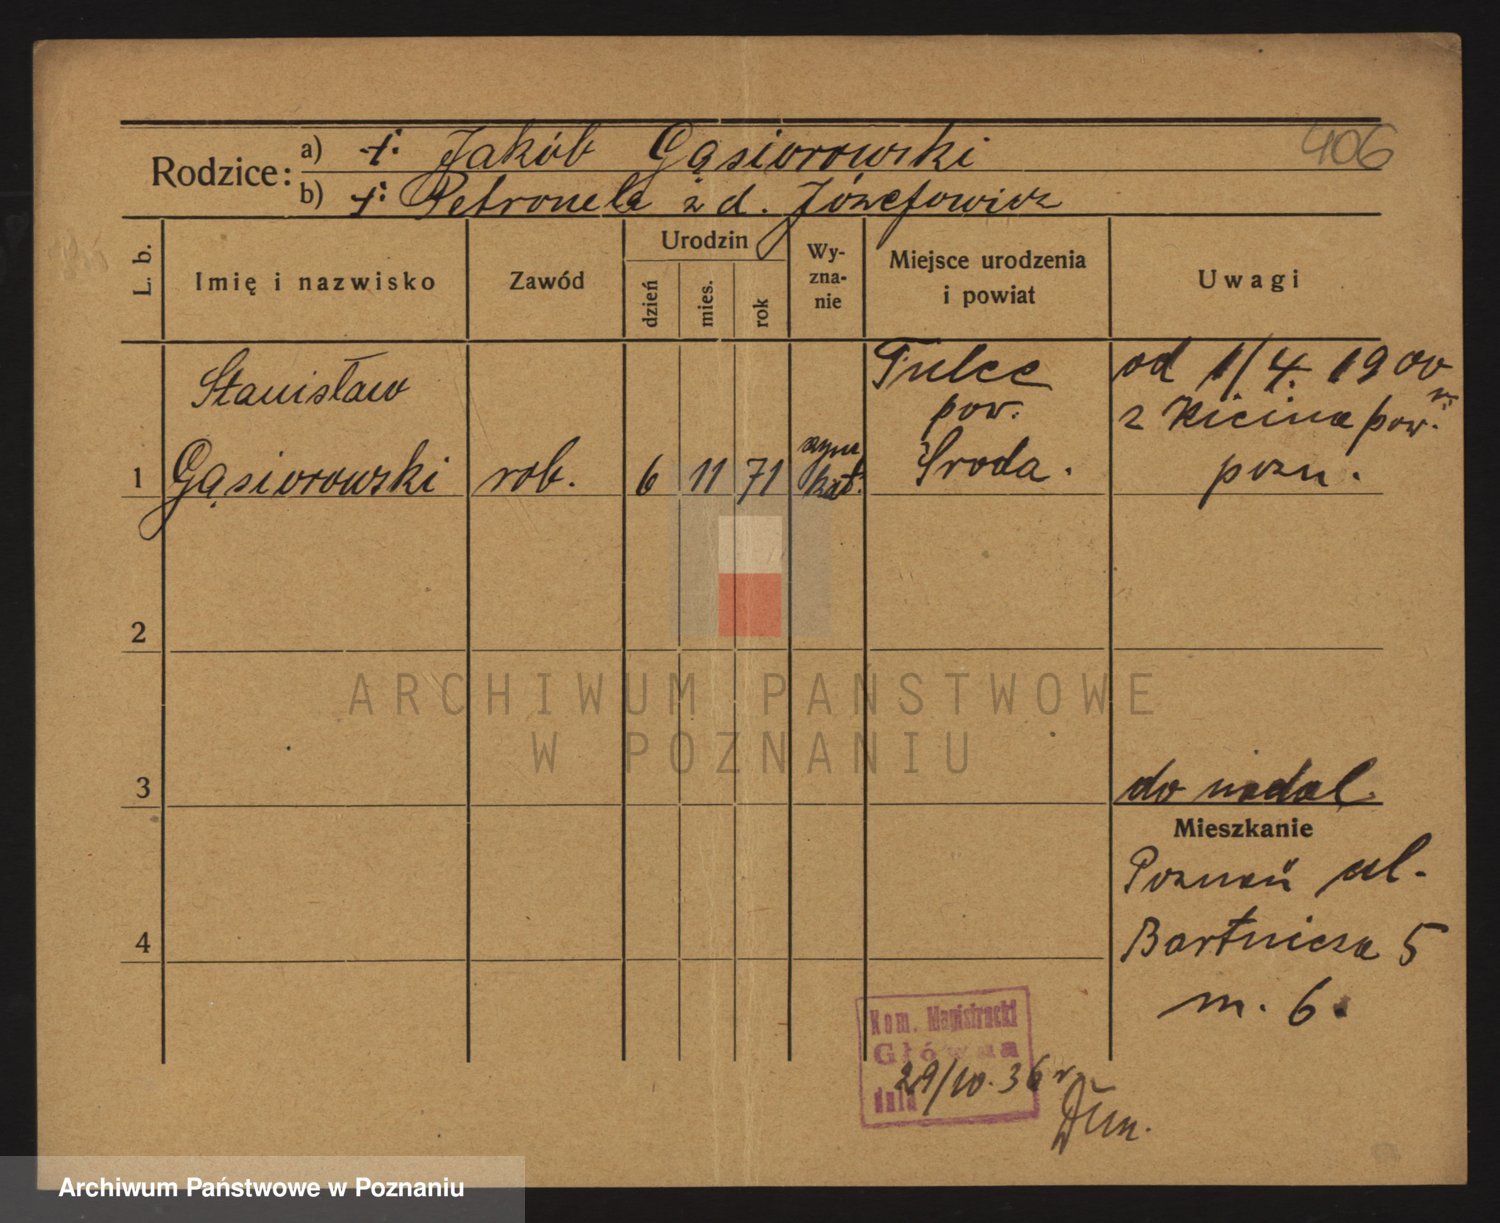 406
Rodzice: a) †. Jakób Gąsiorowski
b) †. Petronela z d. Józefowicz
L. b.
Imię i nazwisko
Zawód
Urodzin
dzień
mies.
rok
Wy-
zna-
nie
Miejsce urodzenia
i powiat
Uwagi
Stanisław
1 Gąsiorowski rob. 6 11 71
rzym
kat.
Tulce
pow.
Środa.
od 1/4. 1900
z Kicina pow.
pozn.
2
3
do nadal
Mieszkanie
Poznań ul.
Bartnicza 5
m. 6.
4
Kom. Magistracki
Główna
dnia 29/10. 36 r.
ARCHIWUM PAŃSTWOWE
W POZNANIU
Archiwum Państwowe w Poznaniu